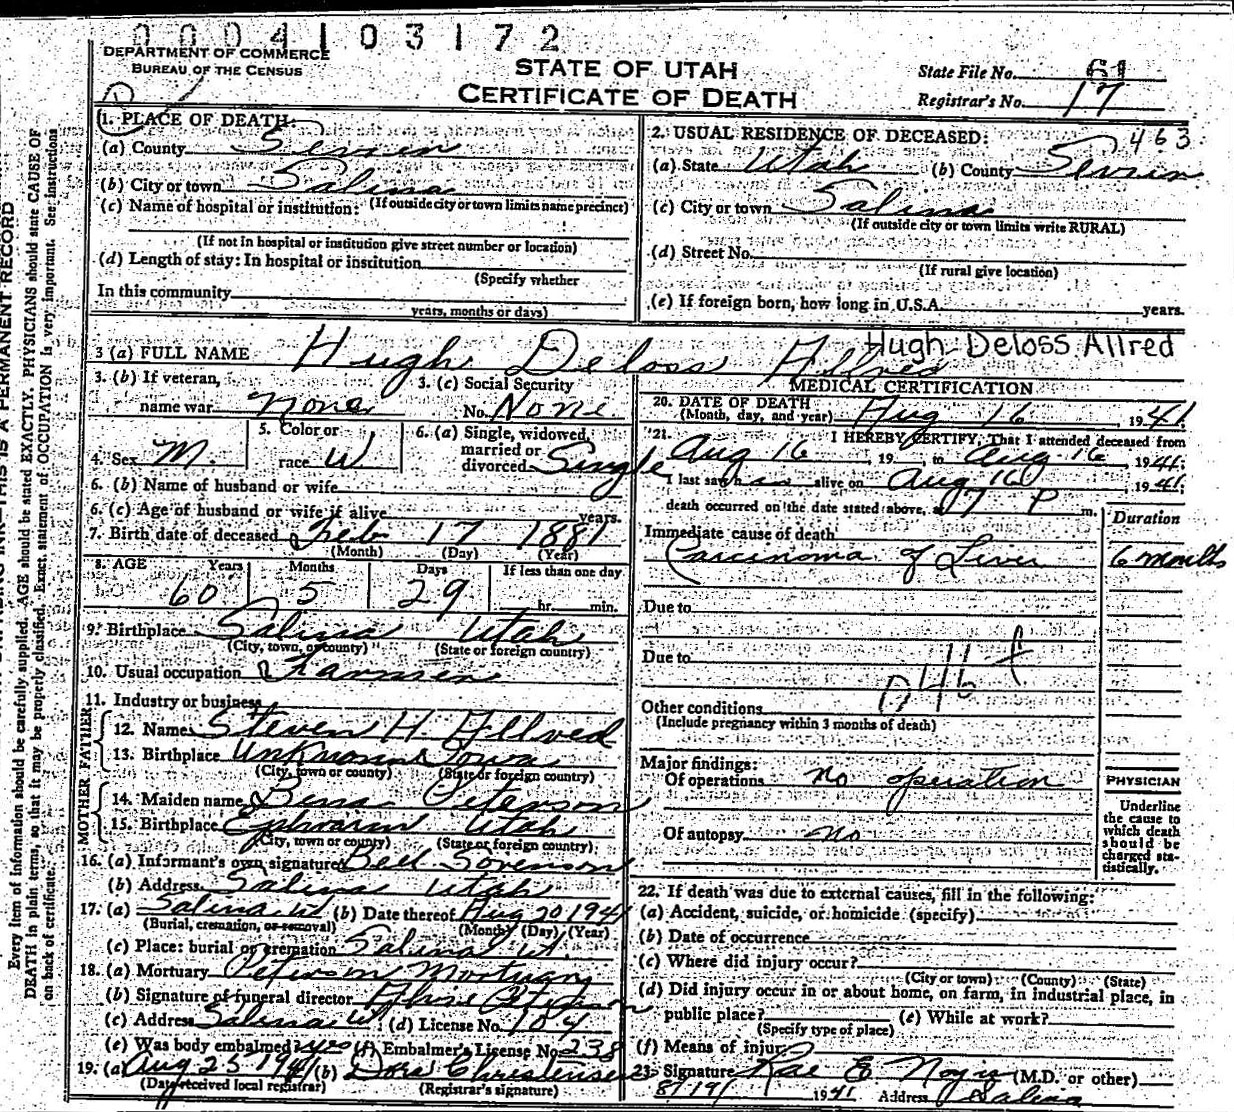 0004103172
DEPARTMENT OF COMMERCE
BUREAU OF THE CENSUS
STATE OF UTAH
CERTIFICATE OF DEATH
State File No. 61
Registrar's No. 17
1. PLACE OF DEATH:
(a) County Sevier
(b) City or town Salina
(If outside city or town limits name precinct)
(c) Name of hospital or institution:
(If not in hospital or institution give street number or location)
(d) Length of stay: In hospital or institution
(Specify whether
In this community
years, months or days)
2. USUAL RESIDENCE OF DECEASED: 463
(a) State Utah (b) County Sevier
(c) City or town Salina
(If outside city or town limits write RURAL)
(d) Street No.
(If rural give location)
(e) If foreign born, how long in U.S.A. years.
3 (a) FULL NAME Hugh Deloss Allred Hugh Deloss Allred
3. (b) If veteran, name war None
3. (c) Social Security No. None
4. Sex M. 5. Color or race W 6. (a) Single, widowed, married or divorced Single
6. (b) Name of husband or wife
6. (c) Age of husband or wife if alive years.
7. Birth date of deceased Feb 17 1881
(Month) (Day) (Year)
8. AGE Years Months Days If less than one day
60 5 29 hr. min.
9. Birthplace Salina Utah
(City, town, or county) (State or foreign country)
10. Usual occupation Farmer
11. Industry or business
FATHER
12. Name Steven H. Allred
13. Birthplace Unknown Iowa
(City, town or county) (State or foreign country)
MOTHER
14. Maiden name Peterson
15. Birthplace Ephraim Utah
(City, town or county) (State or foreign country)
16. (a) Informant's own signature Bell Sorenson
(b) Address Salina Utah
17. (a) Salina Ut (b) Date thereof Aug 20 1941
(Burial, cremation, or removal) (Month) (Day) (Year)
(c) Place: burial or cremation Salina Ut.
18. (a) Mortuary Peterson Mortuary
(b) Signature of funeral director Peterson
(c) Address Salina Ut (d) License No. 104
(e) Was body embalmed? yes (f) Embalmer's License No. 238
19. (a) Aug 25 1941 (b) Dora Christensen
(Day received local registrar) (Registrar's signature)
MEDICAL CERTIFICATION
20. DATE OF DEATH
(Month, day, and year) Aug 16 1941
21. I HEREBY CERTIFY, That I attended deceased from
Aug 16, 19 to Aug 16, 1941;
I last saw him alive on Aug 16 1941;
death occurred on the date stated above, at 7 P m.
Duration
Immediate cause of death
Carcinoma of Liver 6 months
Due to
Due to
046 f
Other conditions
(Include pregnancy within 3 months of death)
Major findings:
Of operations no operation
Of autopsy no
PHYSICIAN
Underline
the cause to
which death
should be
charged sta-
tistically.
22. If death was due to external causes, fill in the following:
(a) Accident, suicide, or homicide (specify)
(b) Date of occurrence
(c) Where did injury occur?
(City or town) (County) (State)
(d) Did injury occur in or about home, on farm, in industrial place, in
public place? (e) While at work?
(Specify type of place)
(f) Means of injury
23. Signature Rae E Noyes (M.D. or other)
8/19/ 1941 Address Salina
Every item of information should be carefully supplied. AGE should be stated EXACTLY. PHYSICIANS should state CAUSE OF
DEATH in plain terms, so that it may be properly classified. Exact statement of OCCUPATION is very important. See instructions
on back of certificate.
THIS IS A PERMANENT RECORD